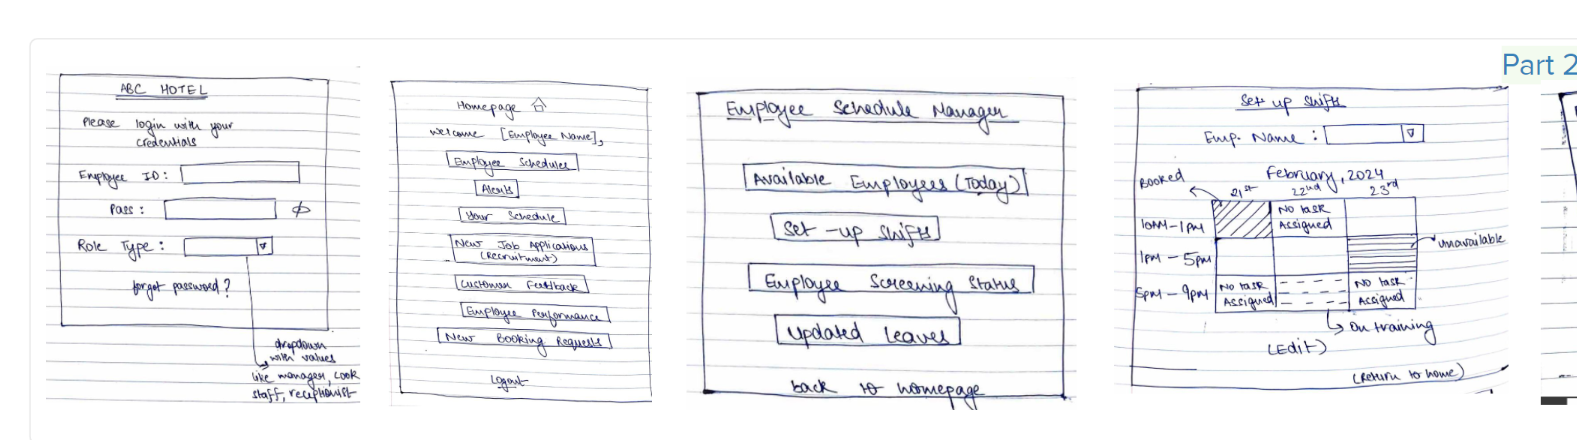 Part 2
ABC HOTEL
Please login with your
credentials
Employee ID:
Pass:
Role Type:
forgot password?
dropdown
with values
like manager, cook
staff, receptionist
Homepage
Welcome [Employee Name],
Employee Schedules
Alerts
Your Schedule
New Job Applications
(Recruitment)
Customer Feedback
Employee Performance
New Booking Requests
Logout
Employee Schedule Manager
Available Employees (Today)
Set-up Shifts
Employee Screening Status
Updated Leaves
back to homepage
Set up Shifts
Emp. Name:
February, 2024
Booked
21st 22nd 23rd
10AM-1PM
No task
Assigned
1PM-5PM
unavailable
5PM-9PM
No task
Assigned
No task
Assigned
On training
(Edit)
(Return to home)